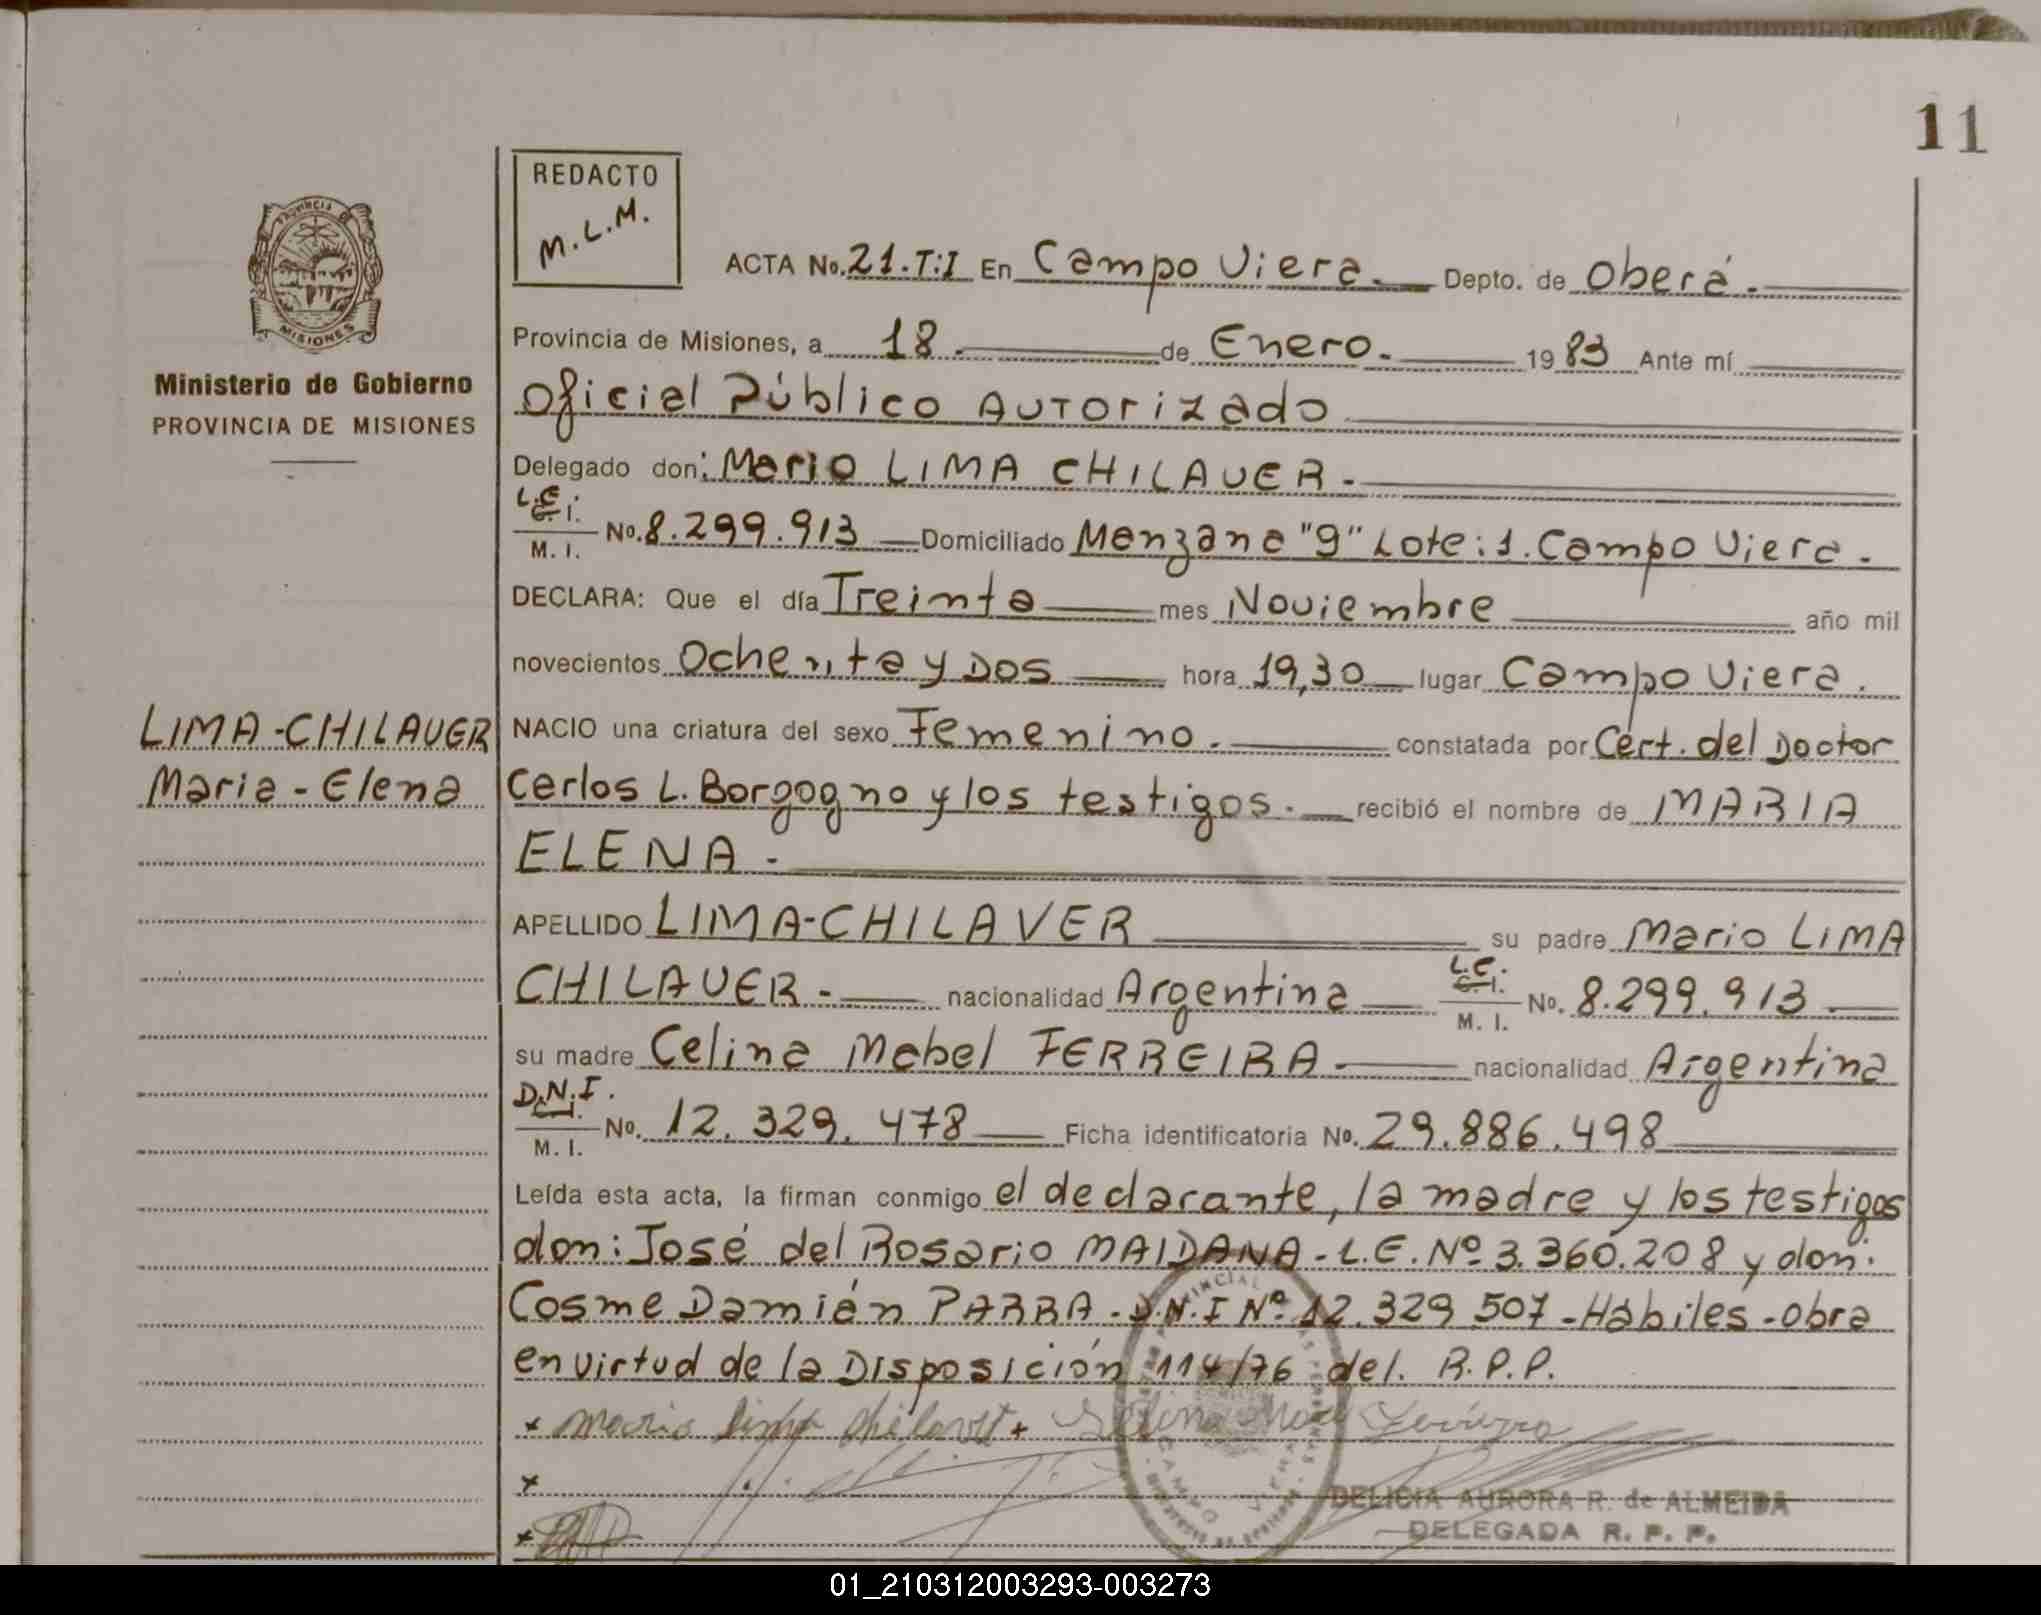 11
REDACTO
M.L.M.
PROVINCIA DE
MISIONES
Ministerio de Gobierno
PROVINCIA DE MISIONES
ACTA No. 21.T:I En Campo Viera. Depto. de Oberá.
Provincia de Misiones, a 18. de Enero. 1983 Ante mí
Oficial Público Autorizado
Delegado don: Mario LIMA CHILAVER.
L.E. C. I. M. I. No. 8.299.913 Domiciliado Manzana "9" Lote: 1. Campo Viera.
DECLARA: Que el día Treinta mes Noviembre año mil
novecientos Ochenta y Dos hora 19,30 lugar Campo Viera.
LIMA-CHILAVER
Maria-Elena
NACIO una criatura del sexo Femenino. constatada por Cert. del Doctor
Carlos L. Borgogno y los testigos. recibió el nombre de MARIA
ELENA.
APELLIDO LIMA-CHILAVER su padre Mario LIMA
CHILAVER. nacionalidad Argentina L.E. C. I. M. I. No. 8.299.913
su madre Celina Mabel FERREIRA nacionalidad Argentina
D.N.I. C. I. M. I. No. 12.329.478 Ficha identificatoria No. 29.886.498
Leída esta acta, la firman conmigo el declarante, la madre y los testigos
don: José del Rosario MAIDANA - L.E. Nº 3.360.208 y don:
Cosme Damián PARRA - D.N.I Nº 12.329.507 - Hábiles - Obra
en virtud de la Disposición 114/76 del. R.P.P.
x Mario Lima Chilaver x
x
x
CAMPO VIERA
DELICIA AURORA R. de ALMEIDA
DELEGADA R. P. P.
01_210312003293-003273